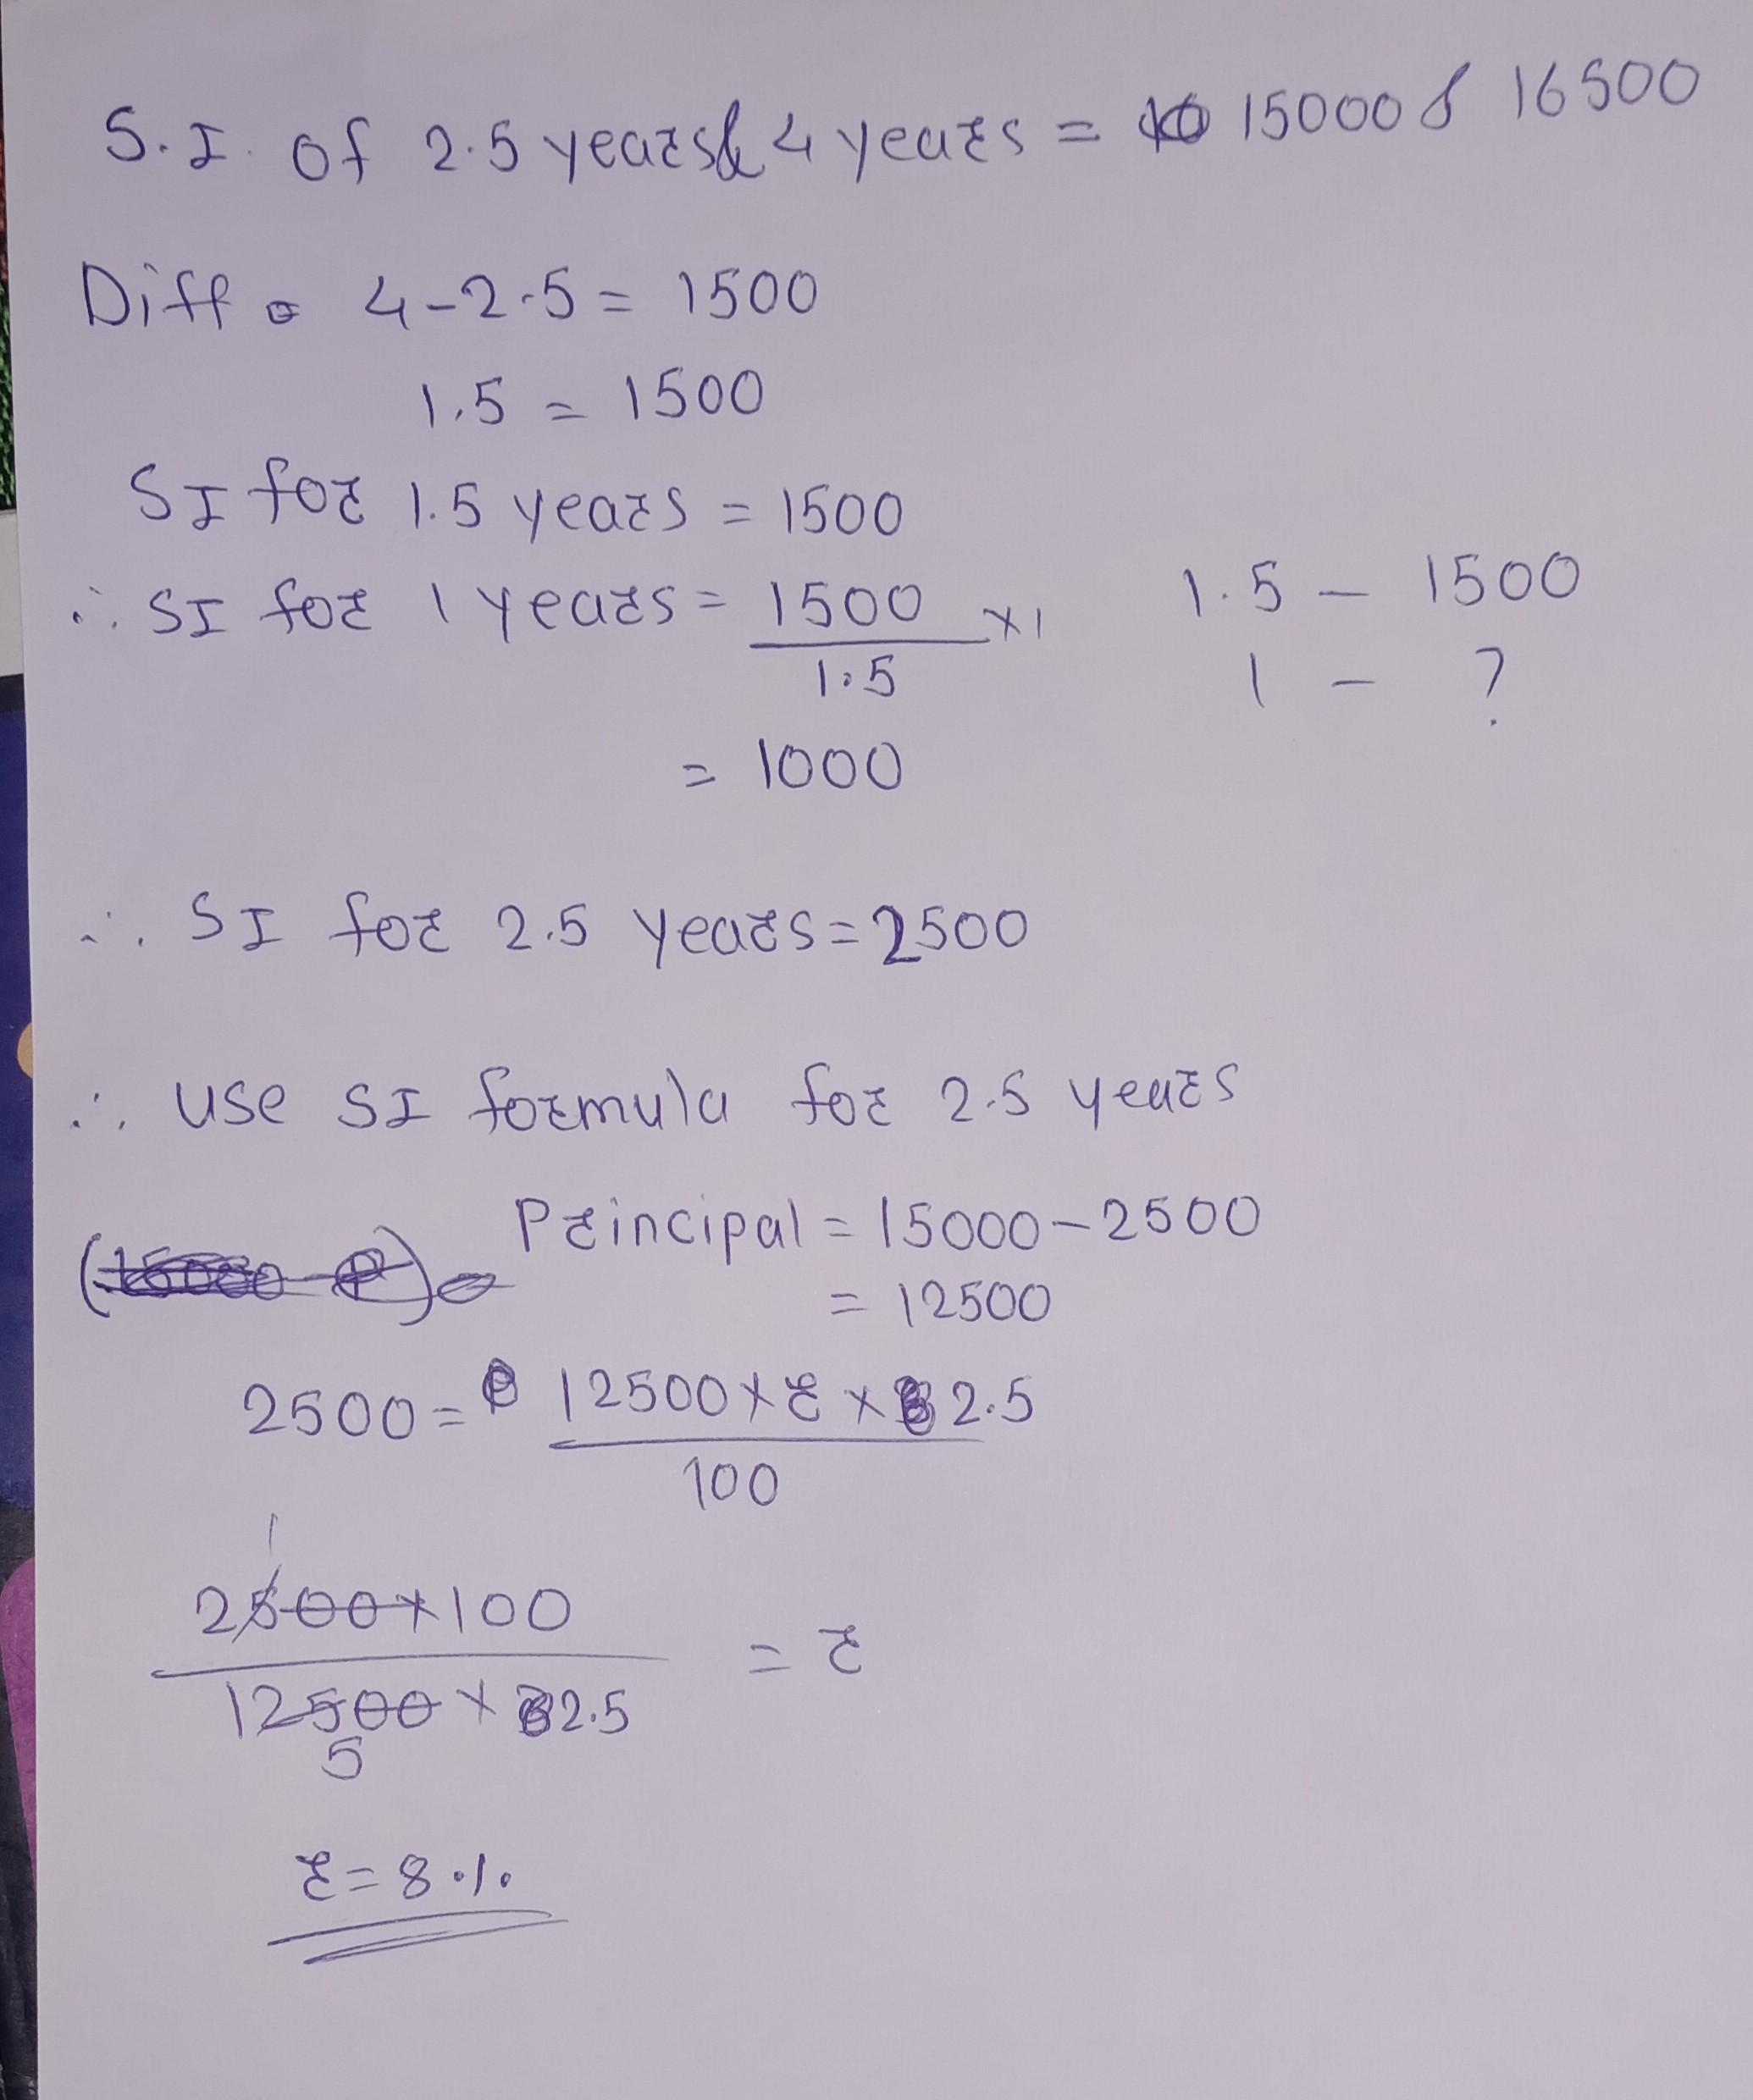 S.I. of 2.5 years & 4 years = 15000 & 16500
Diff 4-2.5 = 1500
1.5 = 1500
SI for 1.5 years = 1500
∴ SI for 1 years = 1500/1.5 x1
1.5 – 1500
1 – ?
= 1000
∴ SI for 2.5 years = 2500
∴ use SI formula for 2.5 years
Principal = 15000-2500
= 12500
2500 = 12500 x r x 2.5
100
1
2500 x 100
= r
12500 x 2.5
5
r = 8%